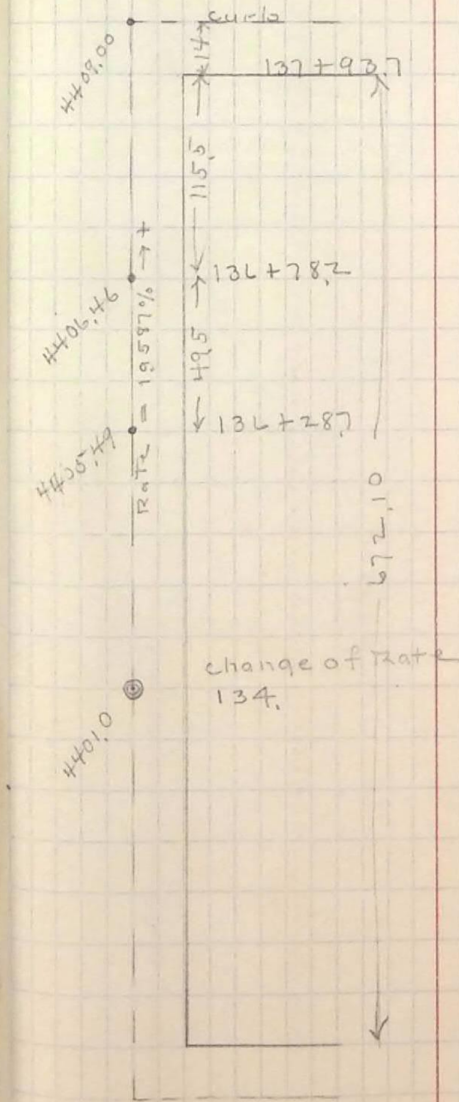 curb
14.7
4409.00
137+93.7
115.5
136+78.2
4406.46
Rate = 1.9587% → +
49.5
136+28.7
4405.49
672.10
change of Rate
134.
4401.0